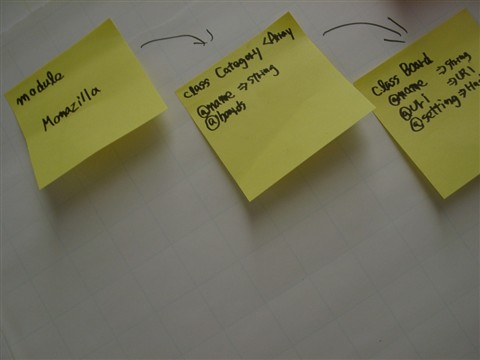 module
Monazilla
class Category < Array
@name => string
@boards
class Board
@name => string
@url => URI
@setting => H